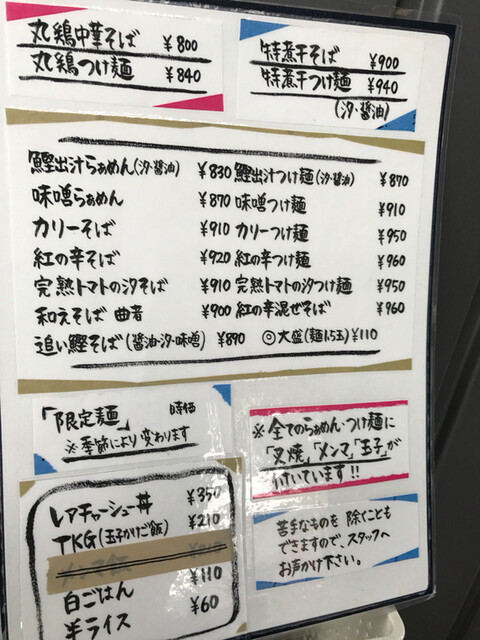 丸鶏中華そば ¥800
丸鶏つけ麺 ¥840
特煮干そば ¥900
特煮干つけ麺 ¥940
(汐・醤油)
鰹出汁らぁめん(汐・醤油) ¥830 鰹出汁つけ麺(汐・醤油) ¥870
味噌らぁめん ¥870 味噌つけ麺 ¥910
カリーそば ¥910 カリーつけ麺 ¥950
紅の辛そば ¥920 紅の辛つけ麺 ¥960
完熟トマトの汐そば ¥910 完熟トマトの汐つけ麺 ¥950
和えそば 曲者 ¥900 紅の辛混ぜそば ¥960
追い鰹そば(醤油・汐・味噌) ¥890 ◎大盛(麺1.5玉)¥110
「限定麺」 時価
※季節により変わります
※全てのらぁめん・つけ麺に
「叉焼」「メンマ」「玉子」が
付いています!!
レアチャーシュー丼 ¥350
TKG(玉子かけご飯) ¥210
白ごはん ¥110
半ライス ¥60
苦手なものを除くことも
できますので、スタッフへ
お声かけ下さい。